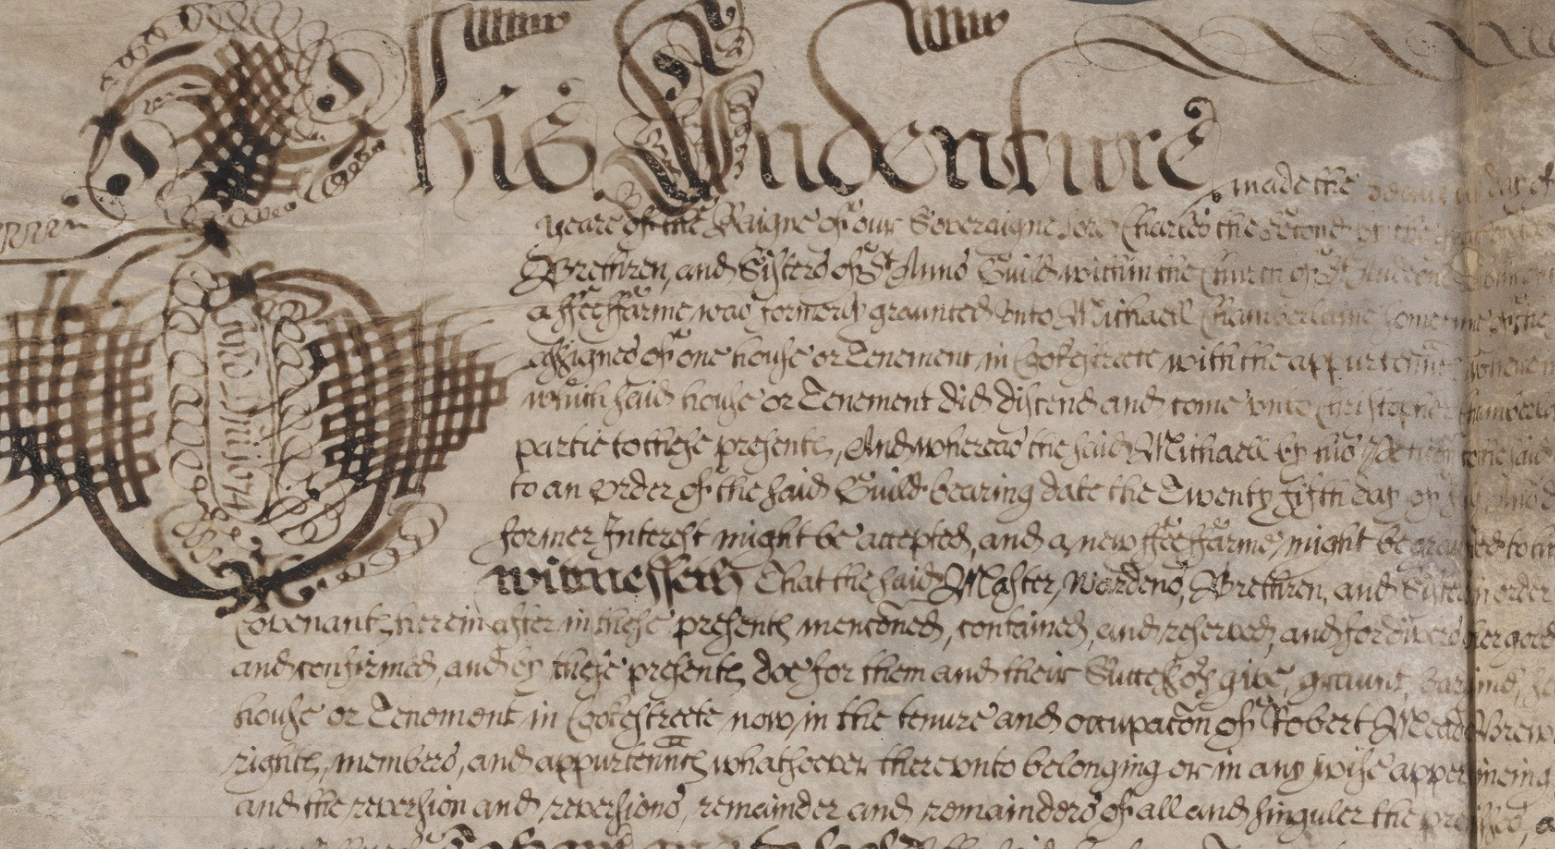 This Indenture made the day of
yeare of the Raigne of our Soveraigne Lord Charles the Second by the
Brethren, and Systers of St Anns Guild within the Church of St
a ffee ffarme, was formerly graunted vnto Michaell Chamberlaine sometime of the
assignes of one house or Tenement in Cookestreete with the appurtennces
which said house or Tenement did discend and come vnto Christopher Chamberl
partie to these presents, And whereas the said Michaell by his Petition to the said
to an Order of the said Guild bearing date the Twenty fifth day of
former Interest might be accepted, and a new ffee ffarme, might be graunted to
witnesseth That the said Master, Wardens, Brethren, and Systers in order
Covenants herein after in these presents menconed, contained, and reserved, and for divers other good
and confirmed, and by these presents doe for them and their Successors give, graunt,
house or Tenement in Cookestreete now in the tenure and occupacon of Robert Mead Brew
rights, members, and appurtennts whatsoever therevnto belonging or in any wise apperteineing
and the reversion and reversions, remainder and remainders of all and singuler the
Anno Dni 1674